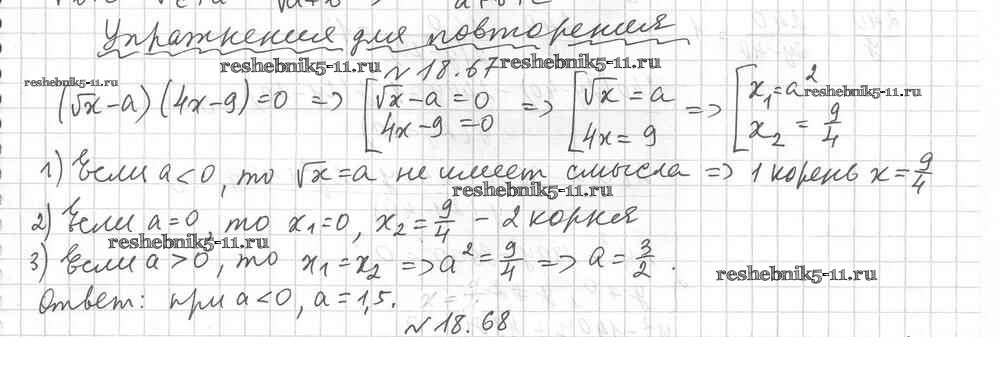 Упражнения для повторения
reshebnik5-11.ru reshebnik5-11.ru
№ 18.67
reshebnik5-11.ru reshebnik5-11.ru
(√x-a)(4x-9)=0 => [√x-a=0 4x-9=0 => [√x=a 4x=9 => [x₁=a² x₂=9/4
1) Если a<0, то √x=a не имеет смысла => 1 корень x=9/4
reshebnik5-11.ru
2) Если a=0, то x₁=0, x₂=9/4 - 2 корня
reshebnik5-11.ru
3) Если a>0, то x₁=x₂ => a²=9/4 => a=3/2.
reshebnik5-11.ru
Ответ: при a<0, a=1,5.
№ 18.68